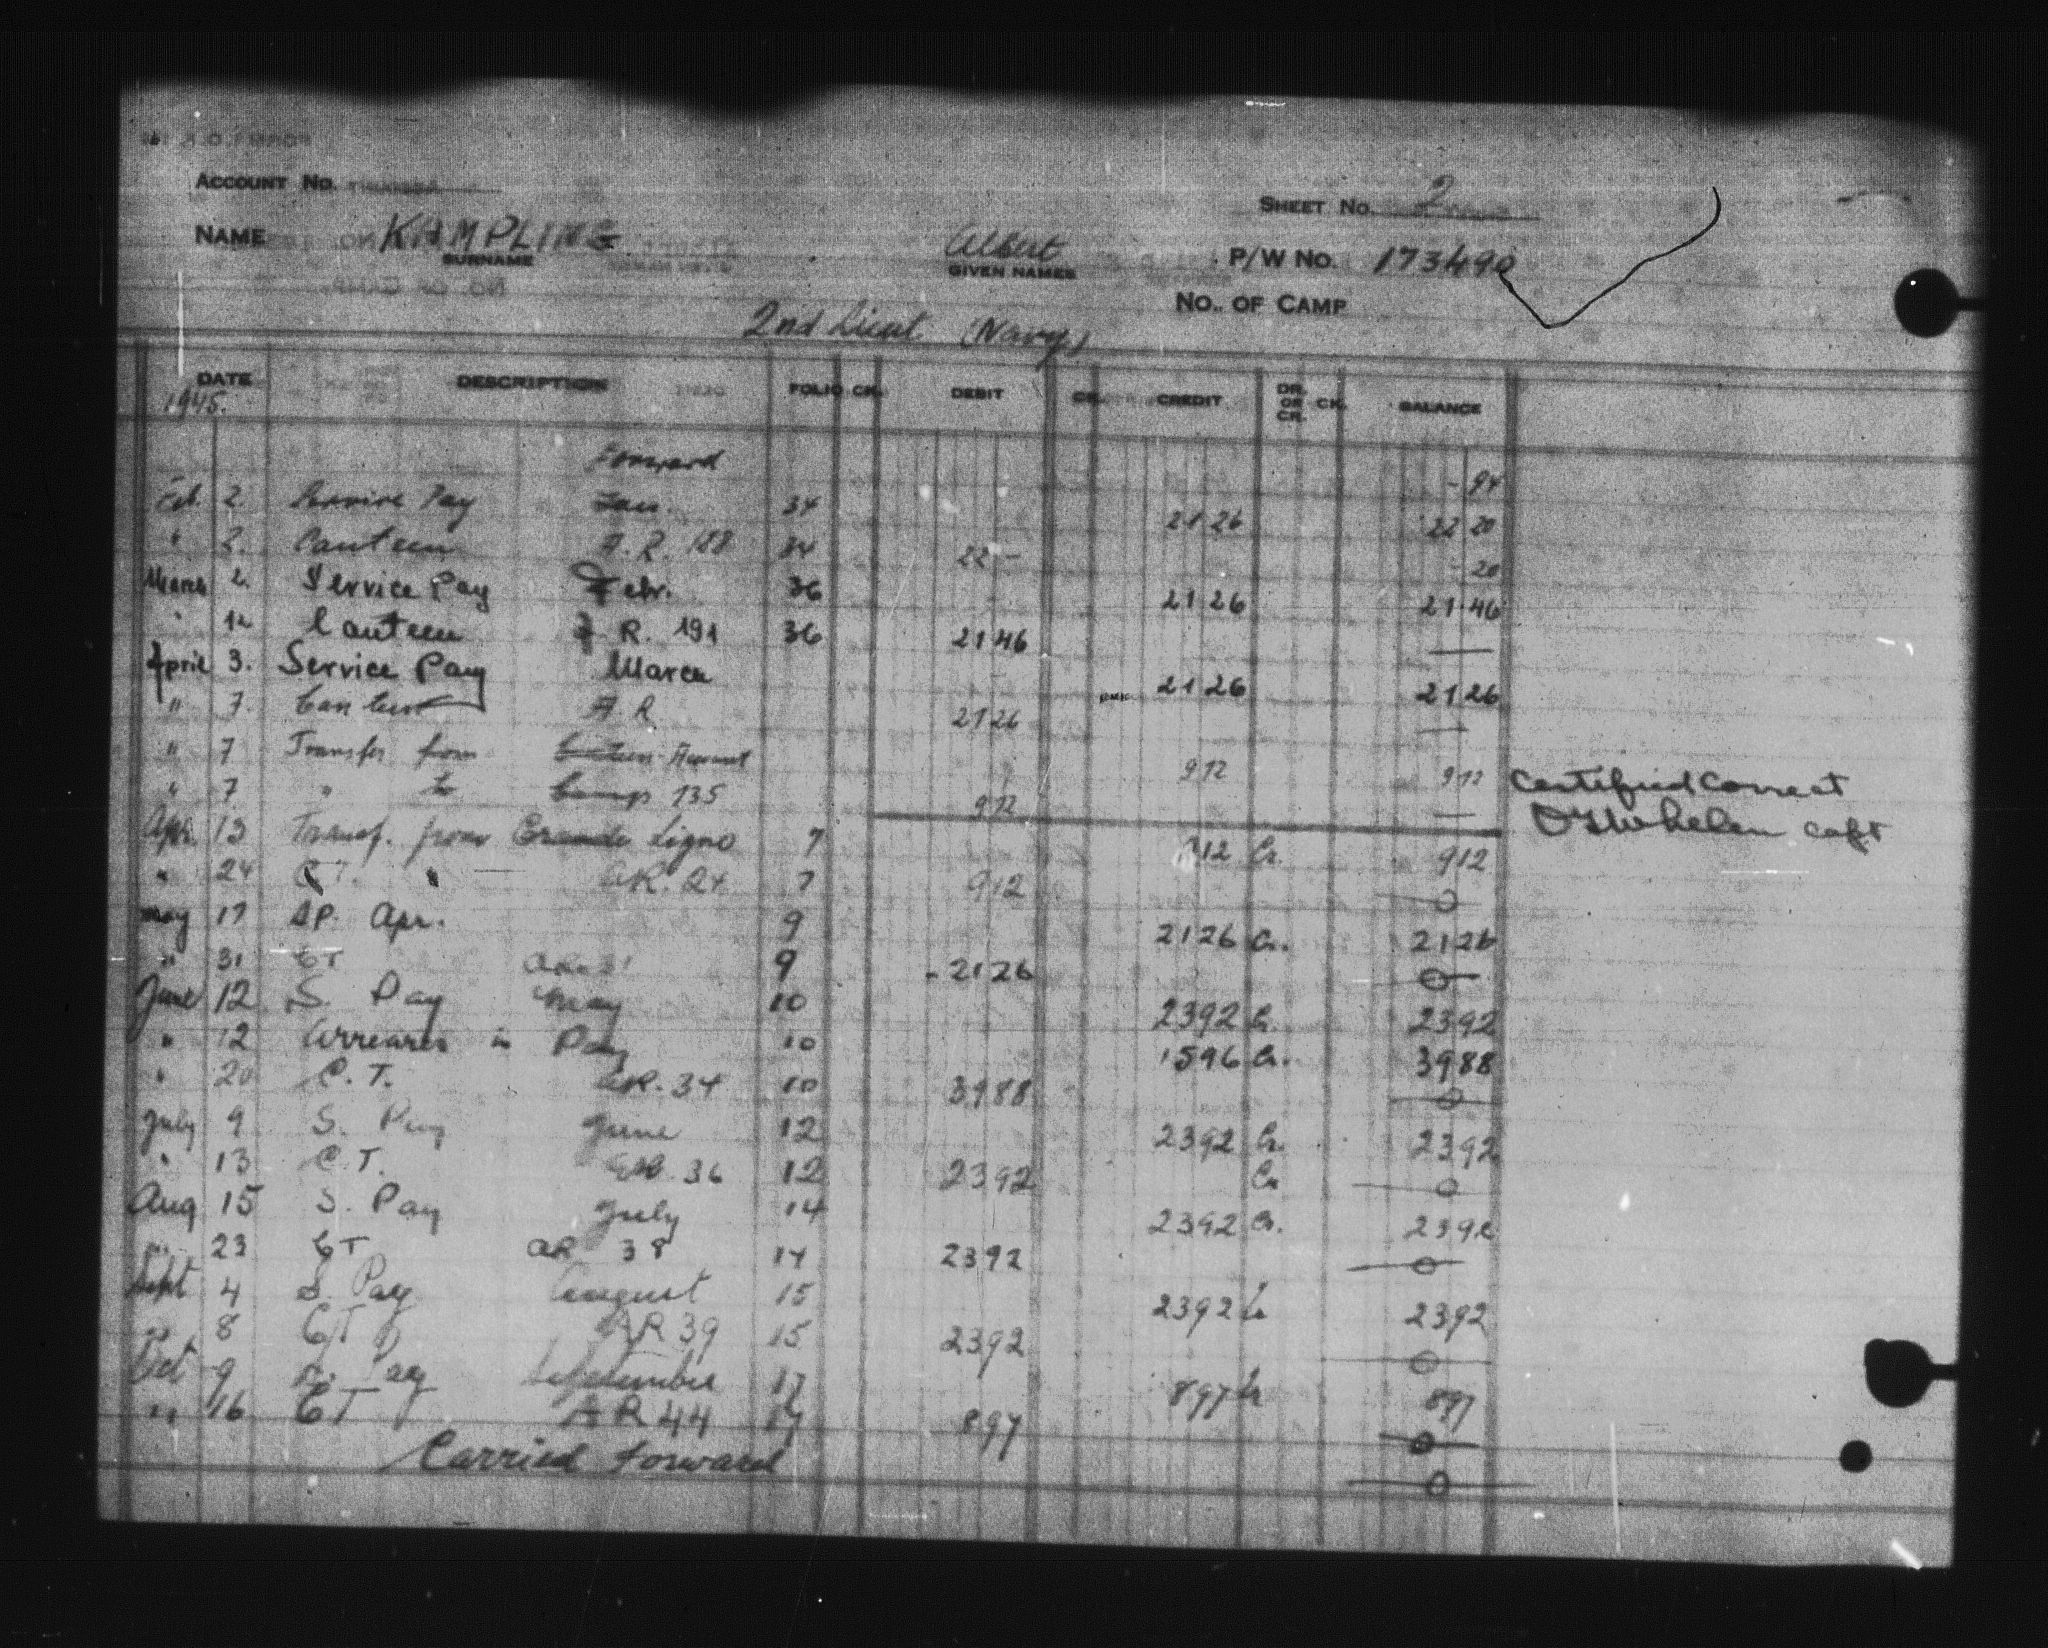 ACCOUNT NO.
SHEET NO. 2
NAME KAMPLING Albert P/W NO. 173490
SURNAME GIVEN NAMES
NO. OF CAMP
2nd Lieut. (Navy)
DATE DESCRIPTION FOLIO CK. DEBIT CK. CREDIT DR. OR CR. CK. BALANCE
1945.
Forward - 94
Feb. 2. Service Pay Jan. 34 21 26 22 20
" 2. Canteen A.R. 188 34 22 - - 20
March 2. Service Pay Febr. 36 21 26 21 46
" 12 Canteen R. 191 36 21 46 —
April 3. Service Pay March 21 26 21 26
" 7. Canteen A R. 21 26 —
" 7 Transfer from Canteen Account 9 12 9 12
" 7 " to Camp 135 9 12 —
Certified Correct
Capt
Apr. 13 Transf. from Grande Ligne 7 912 Cr. 912
" 24 C.T. " — AR. 24 7 912 0
May 17 SP. Apr. 9 2126 Cr. 2126
" 31 CT AR 9 - 2126 0
June 12 S. Pay May 10 2392 Cr. 2392
" 12 Arrears in Pay 10 1596 Cr. 3988
" 20 C.T. AR. 34 10 3988 0
July 9 S. Pay June 12 2392 Cr. 2392
" 13 C.T. AR. 36 12 2392 Cr 0
Aug 15 S. Pay July 14 2392 Cr. 2392
" 23 CT AR 38 14 2392 0
Sept 4 S. Pay August 15 2392 Cr 2392
" 8 CT AR 39 15 2392 0
Oct 9 S. Pay September 17 897 Cr 897
" 16 CT AR 44 17 897 0
Carried forward 0